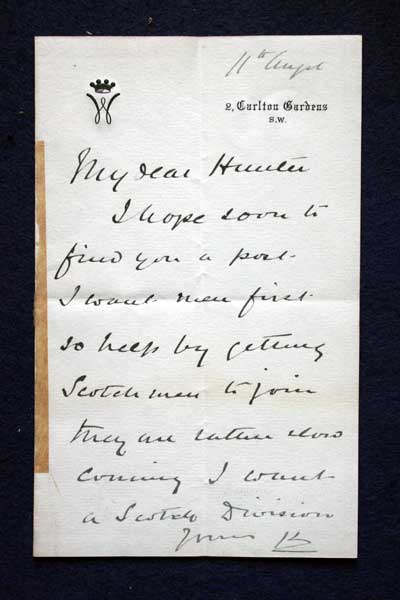 11th Augst
W
2, Carlton Gardens
S.W.
My dear Hunter
I hope soon to
find you a post.
I want men first
so help by getting
Scotchmen to join
they are rather slow
coming I want
a Scotch Division
Yours K